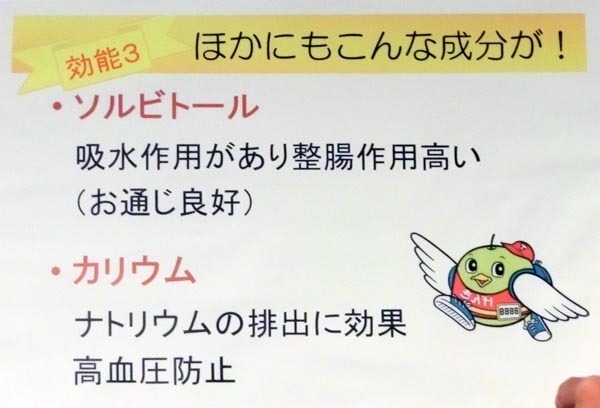 効能3
ほかにもこんな成分が！
・ソルビトール
吸水作用があり整腸作用高い
（お通じ良好）
・カリウム
ナトリウムの排出に効果
高血圧防止
T
8888